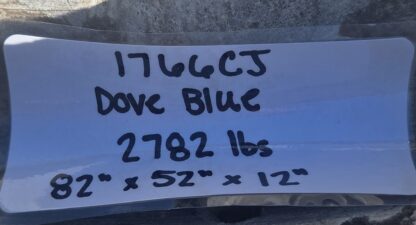 1766CJ
Dove Blue
2782 lbs
82" x 52" x 12"